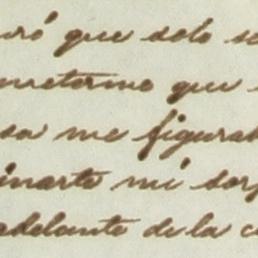 ró que solo se
metermo que
sa me figurab
inarte mi sorp
adelante de la c